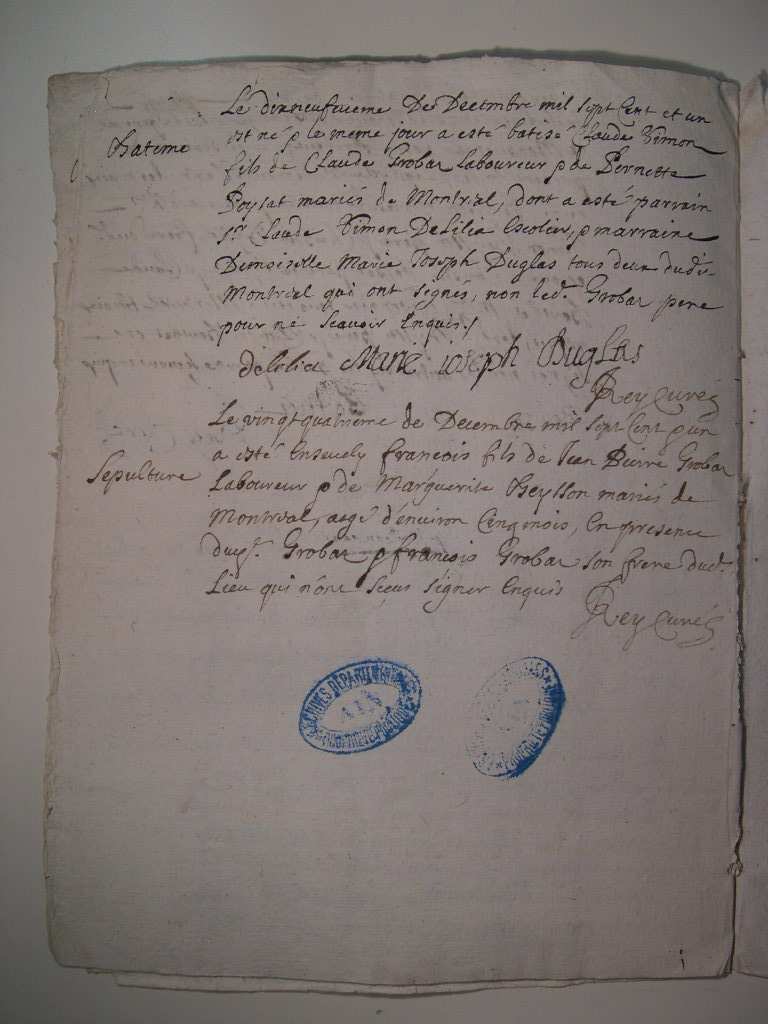 Batême
Le dixneufvieme De Decembre mil sept Cent et un
est né & le meme jour a esté batisé Claude Simon
fils de Claude Grobaz Laboureur & de Pernette
Poysat mariés de Montreal, dont a esté parrain
Sr. Claude Simon DeLilia Escolier, & marraine
Demoiselle Marie Joseph Duglas tous deux dudit
Montreal qui ont signés, non led. Grobaz pere
pour ne scavoir Enquis./
delilia Marie ioseph Duglas
Rey Curé
Sepulture
Le vingt quatrieme de Decembre mil sept Cent & un
a esté Ensevely francois fils de Jean Pierre Grobaz
Laboureur & de Marguerite mariés de
Montreal, aagé d'environ Cinq mois, En presence
dud. Grobaz & francois Grobaz son frere dud.
Lieu qui n'ont sceus signer Enquis
Rey Curé
ARCHIVES DÉPARTEMENTALES
AIN
PROPRIÉTÉ PUBLIQUE
PROPRIÉTÉ PUBLIQUE